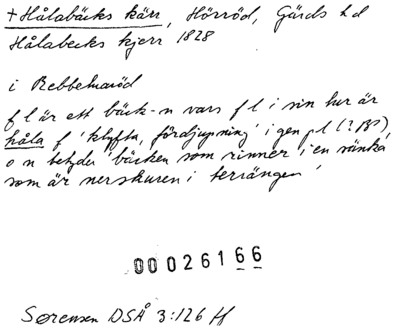 +Hålabäcks kärr, Hörröd, Gärds hd
Hålabecks kjerr 1828
i Rebbelmaröd
f l är ett bäck-n vars f l i sin tur är
håla f 'klyfta, fördjupning' i gen pl (? BP),
o n betyder 'bäcken som rinner i en sänka
som är nerskuren i terrängen'
00026166
Sørensen DSÅ 3:126 ff